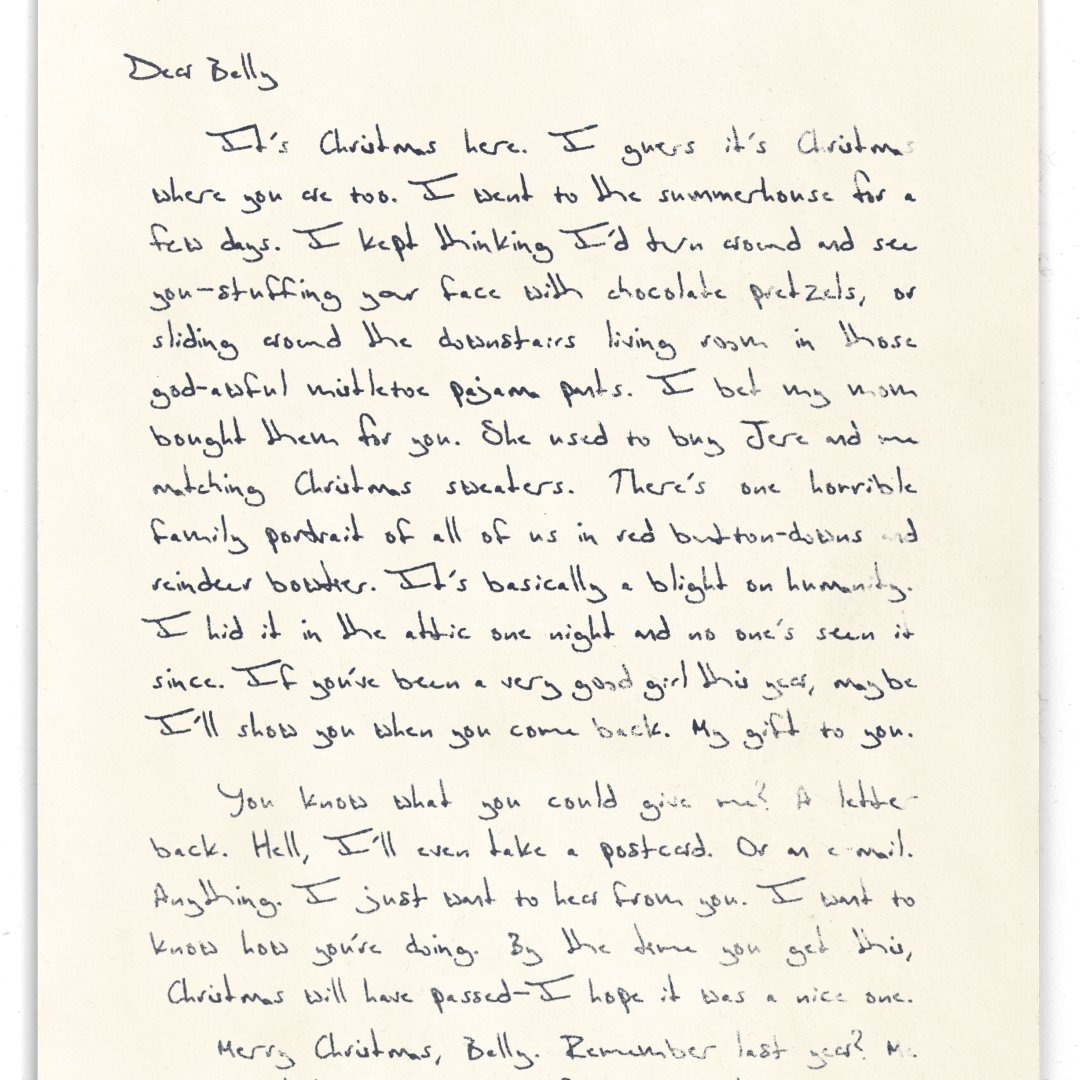 Dear Belly
It's Christmas here. I guess it's Christmas
where you are too. I went to the summerhouse for a
few days. I kept thinking I'd turn around and see
you—stuffing your face with chocolate pretzels, or
sliding around the downstairs living room in those
god-awful mistletoe pajama pants. I bet my mom
bought them for you. She used to buy Jere and me
matching Christmas sweaters. There's one horrible
family portrait of all of us in red button-downs and
reindeer bowties. It's basically a blight on humanity.
I hid it in the attic one night and no one's seen it
since. If you've been a very good girl this year, maybe
I'll show you when you come back. My gift to you.
You know what you could give me? A letter
back. Hell, I'll even take a postcard. Or an e-mail.
Anything. I just want to hear from you. I want to
know how you're doing. By the time you get this,
Christmas will have passed—I hope it was a nice one.
Merry Christmas, Belly. Remember last year?